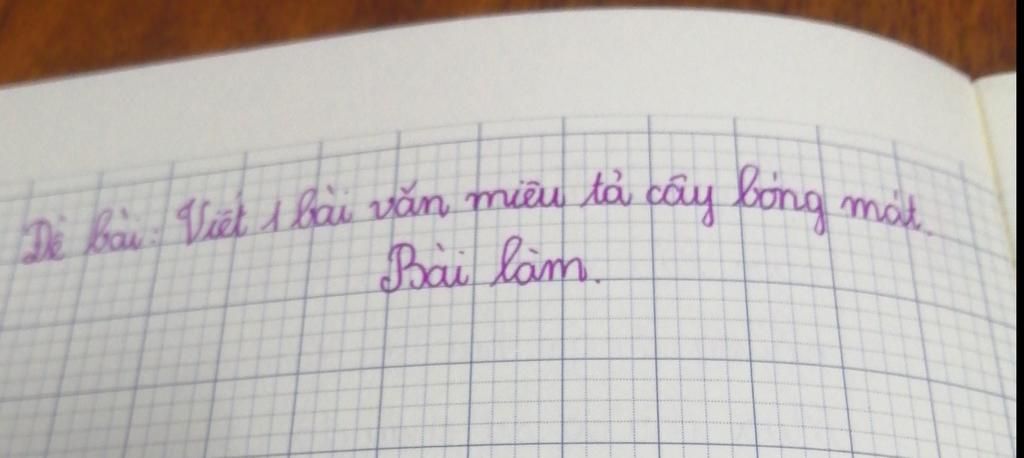 Đề bài: Viết 1 bài văn miêu tả cây bóng mát.
Bài làm.